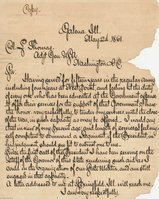 Copy.
Galena Ill.
May 24th 1861
Col. L. Thomas
Adjt. Gen. U.S.A.
Washington D.C.
Sir:
Having served for fifteen years in the regular army,
including four years at West Point, and feeling it the duty
of every one who has been educated at the Government expense
to offer their services for the support of that Government, I have
the honor, very respectfully, to tender my services until the close
of the war, in such capacity as may be offered. I would say
that in view of my present age, and length of service, I feel
myself competent to command a Regiment if the President
in his judgment should see fit to intrust one to me.
Since the first call of the President I have been serving on the
Staff of the Governor of this state rendering such aid as I
could in the organization of our state Militia, and am still
engaged in that capacity.
A letter addressed to me at Springfield Ill. will reach me.
I am very respectfully